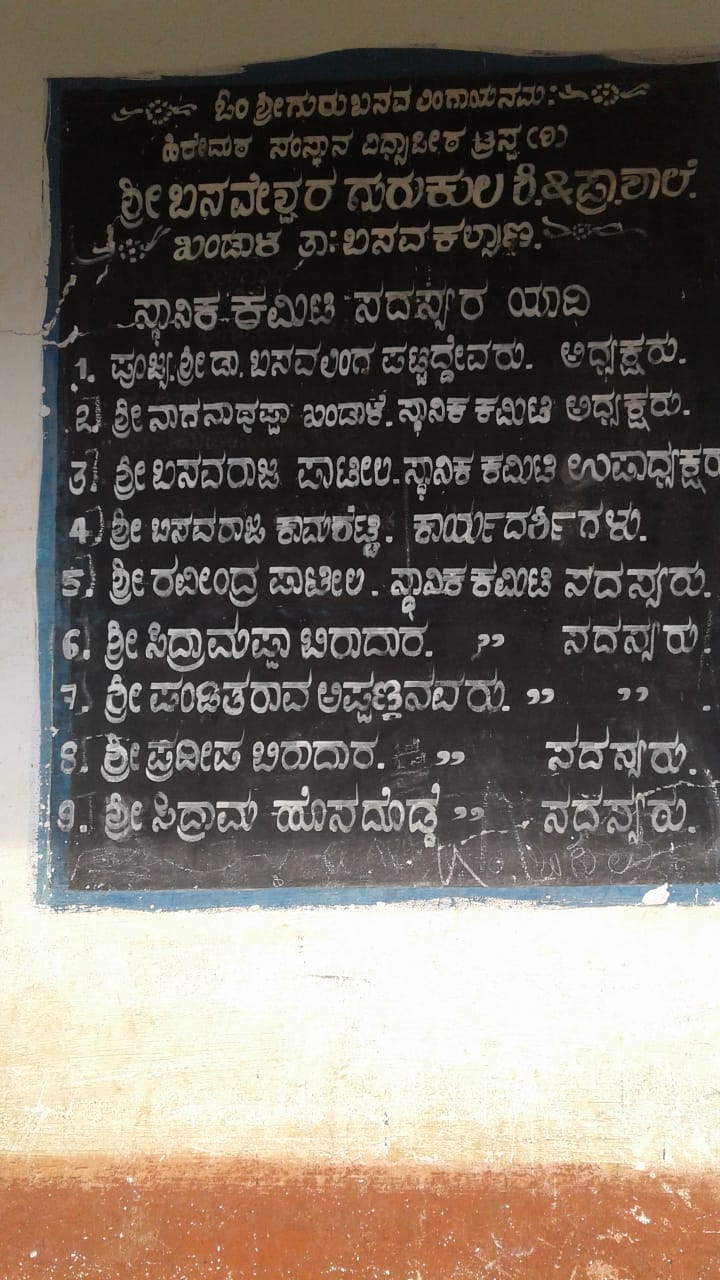 ಓಂ ಶ್ರೀ ಗುರು ಬಸವ ಲಿಂಗಾಯ ನಮ:
ಹಿರೇಮಠ ಸಂಸ್ಥಾನ ವಿದ್ಯಾಪೀಠ ಟ್ರಸ್ಟ (ರಿ)
ಶ್ರೀ ಬಸವೇಶ್ವರ ಗುರುಕುಲ ಕಿ.&ಪ್ರಾ.ಶಾಲೆ.
ಖಂಡಾಳ ತಾ: ಬಸವ ಕಲ್ಯಾಣ.
ಸ್ಥಾನಿಕ ಕಮಿಟಿ ಸದಸ್ಯರ ಯಾದಿ
1. ಪೂಜ್ಯ. ಶ್ರೀ ಡಾ. ಬಸವಲಿಂಗ ಪಟ್ಟದ್ದೇವರು. ಅಧ್ಯಕ್ಷರು.
2. ಶ್ರೀ ನಾಗನಾಥಪ್ಪಾ ಖಂಡಾಳೆ. ಸ್ಥಾನಿಕ ಕಮಿಟಿ ಅಧ್ಯಕ್ಷರು.
3. ಶ್ರೀ ಬಸವರಾಜ ಪಾಟೀಲ. ಸ್ಥಾನಿಕ ಕಮಿಟಿ ಉಪಾಧ್ಯಕ್ಷರ
4. ಶ್ರೀ ಬಸವರಾಜ ಕಾಮಶೆಟ್ಟಿ. ಕಾರ್ಯದರ್ಶಿಗಳು.
5. ಶ್ರೀ ರವೀಂದ್ರ ಪಾಟೀಲ. ಸ್ಥಾನಿಕ ಕಮಿಟಿ ಸದಸ್ಯರು.
6. ಶ್ರೀ ಸಿದ್ರಾಮಪ್ಪಾ ಬಿರಾದಾರ. ,, ಸದಸ್ಯರು.
7. ಶ್ರೀ ಪಂಡಿತರಾವ ಅಪ್ಪಣ್ಣನವರು. ,, ,, .
8. ಶ್ರೀ ಪ್ರದೀಪ ಬಿರಾದಾರ. ,, ಸದಸ್ಯರು.
9. ಶ್ರೀ ಸಿದ್ರಾಮ ಹೊಸದೊಡ್ಡೆ ,, ಸದಸ್ಯರು.